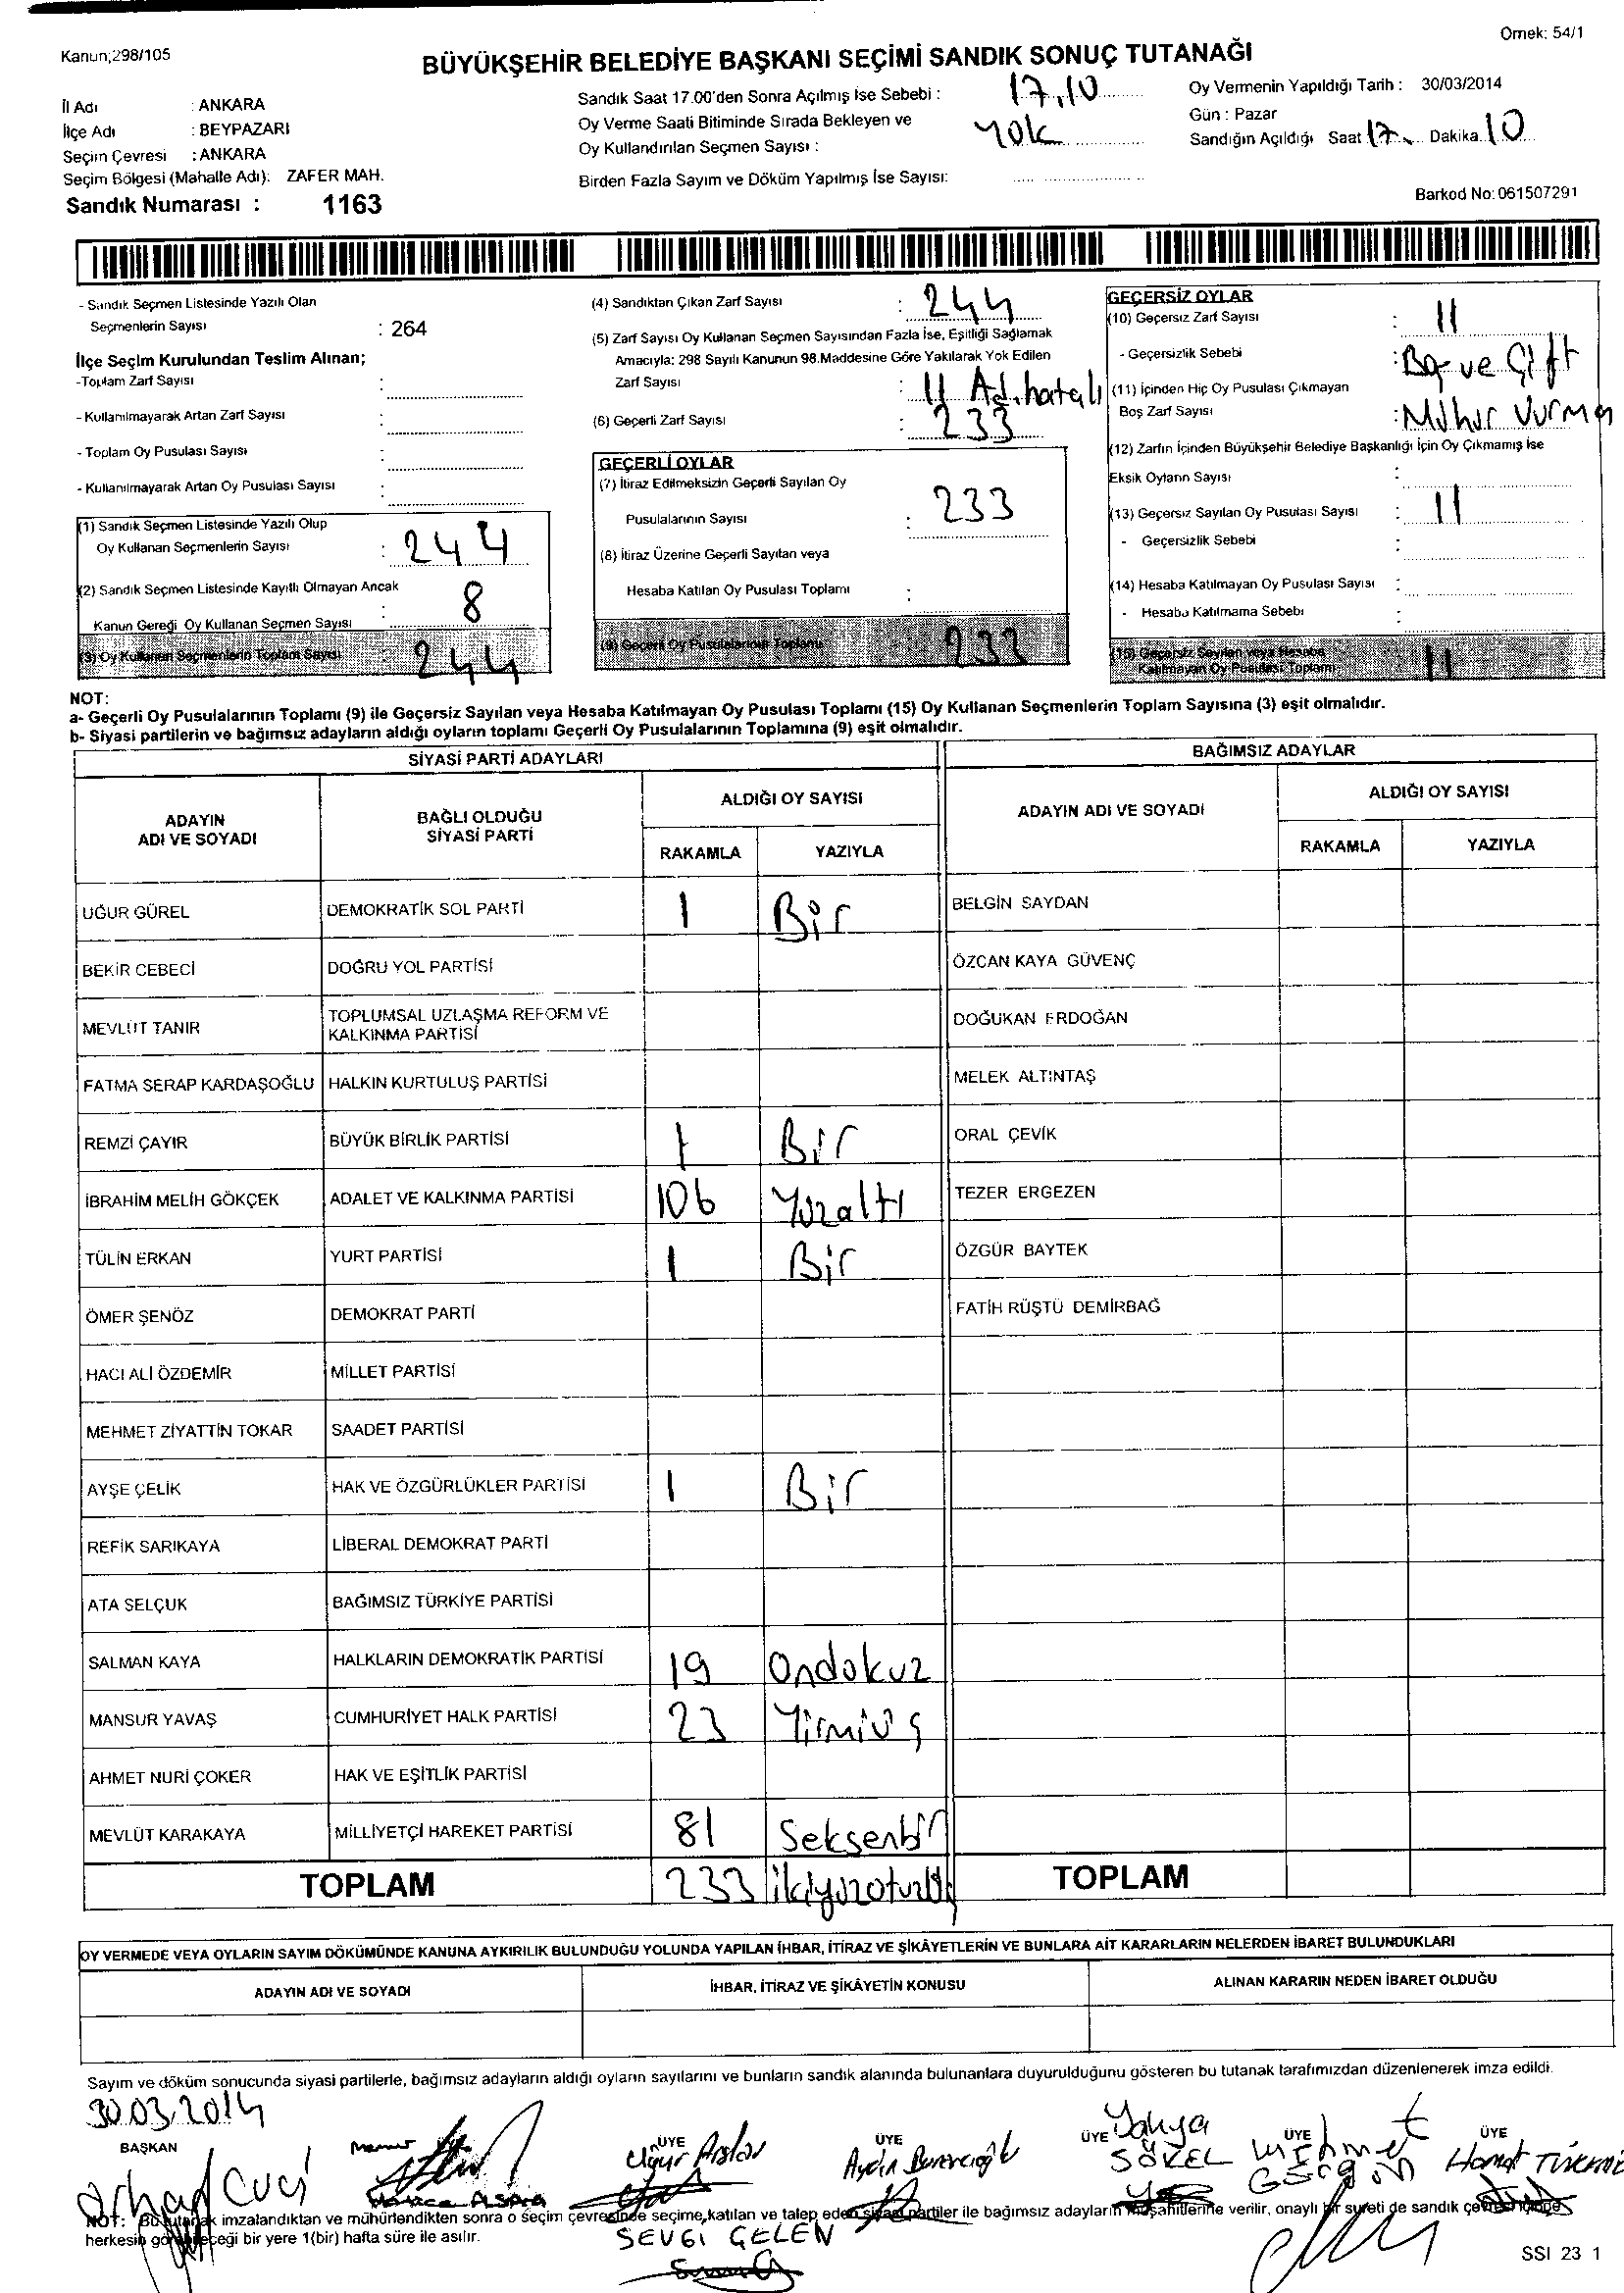 Kanun;298/105
Örnek: 54/1
BÜYÜKŞEHİR BELEDİYE BAŞKANI SEÇİMİ SANDIK SONUÇ TUTANAĞI
İl Adı : ANKARA
İlçe Adı : BEYPAZARI
Seçim Çevresi : ANKARA
Seçim Bölgesi (Mahalle Adı): ZAFER MAH.
Sandık Numarası : 1163
Sandık Saat 17.00'den Sonra Açılmış İse Sebebi : 17.10
Oy Verme Saati Bitiminde Sırada Bekleyen ve
Oy Kullandırılan Seçmen Sayısı : Yok
Birden Fazla Sayım ve Döküm Yapılmış İse Sayısı:
Oy Vermenin Yapıldığı Tarih : 30/03/2014
Gün : Pazar
Sandığın Açıldığı Saat 17 Dakika 10
Barkod No: 061507291
- Sandık Seçmen Listesinde Yazılı Olan
Seçmenlerin Sayısı : 264
İlçe Seçim Kurulundan Teslim Alınan;
-Toplam Zarf Sayısı :
- Kullanılmayarak Artan Zarf Sayısı :
- Toplam Oy Pusulası Sayısı :
- Kullanılmayarak Artan Oy Pusulası Sayısı :
(1) Sandık Seçmen Listesinde Yazılı Olup
Oy Kullanan Seçmenlerin Sayısı : 244
(2) Sandık Seçmen Listesinde Kayıtlı Olmayan Ancak
Kanun Gereği Oy Kullanan Seçmen Sayısı : 8
(3) Oy Kullanan Seçmenlerin Toplam Sayısı : 244
(4) Sandıktan Çıkan Zarf Sayısı : 244
(5) Zarf Sayısı Oy Kullanan Seçmen Sayısından Fazla İse, Eşitliği Sağlamak
Amacıyla: 298 Sayılı Kanunun 98.Maddesine Göre Yakılarak Yok Edilen
Zarf Sayısı : 11 Ad. hatalı
(6) Geçerli Zarf Sayısı : 233
GEÇERLİ OYLAR
(7) İtiraz Edilmeksizin Geçerli Sayılan Oy
Pusulalarının Sayısı : 233
(8) İtiraz Üzerine Geçerli Sayılan veya
Hesaba Katılan Oy Pusulası Toplamı :
(9) Geçerli Oy Pusulalarının Toplamı : 233
GEÇERSİZ OYLAR
(10) Geçersiz Zarf Sayısı : 11
- Geçersizlik Sebebi : Boş ve Çift
(11) İçinden Hiç Oy Pusulası Çıkmayan
Boş Zarf Sayısı : Mühür Vurma
(12) Zarfın İçinden Büyükşehir Belediye Başkanlığı İçin Oy Çıkmamış İse
Eksik Oyların Sayısı :
(13) Geçersiz Sayılan Oy Pusulası Sayısı : 11
- Geçersizlik Sebebi :
(14) Hesaba Katılmayan Oy Pusulası Sayısı :
- Hesaba Katılmama Sebebi :
(15) Geçersiz Sayılan veya Hesaba
Katılmayan Oy Pusulası Toplamı 11
NOT:
a- Geçerli Oy Pusulalarının Toplamı (9) ile Geçersiz Sayılan veya Hesaba Katılmayan Oy Pusulası Toplamı (15) Oy Kullanan Seçmenlerin Toplam Sayısına (3) eşit olmalıdır.
b- Siyasi partilerin ve bağımsız adayların aldığı oyların toplamı Geçerli Oy Pusulalarının Toplamına (9) eşit olmalıdır.
SİYASİ PARTİ ADAYLARI
ADAYIN ADI VE SOYADI BAĞLI OLDUĞU SİYASİ PARTİ ALDIĞI OY SAYISI
RAKAMLA YAZIYLA
UĞUR GÜREL DEMOKRATİK SOL PARTİ 1 Bir
BEKİR CEBECİ DOĞRU YOL PARTİSİ
MEVLÜT TANIR TOPLUMSAL UZLAŞMA REFORM VE KALKINMA PARTİSİ
FATMA SERAP KARDAŞOĞLU HALKIN KURTULUŞ PARTİSİ
REMZİ ÇAYIR BÜYÜK BİRLİK PARTİSİ 1 Bir
İBRAHİM MELİH GÖKÇEK ADALET VE KALKINMA PARTİSİ 106 Yüzaltı
TÜLİN ERKAN YURT PARTİSİ 1 Bir
ÖMER ŞENÖZ DEMOKRAT PARTİ
HACI ALİ ÖZDEMİR MİLLET PARTİSİ
MEHMET ZİYATTİN TOKAR SAADET PARTİSİ
AYŞE ÇELİK HAK VE ÖZGÜRLÜKLER PARTİSİ 1 Bir
REFİK SARIKAYA LİBERAL DEMOKRAT PARTİ
ATA SELÇUK BAĞIMSIZ TÜRKİYE PARTİSİ
SALMAN KAYA HALKLARIN DEMOKRATİK PARTİSİ 19 Ondokuz
MANSUR YAVAŞ CUMHURİYET HALK PARTİSİ 23 Yirmiüç
AHMET NURİ ÇOKER HAK VE EŞİTLİK PARTİSİ
MEVLÜT KARAKAYA MİLLİYETÇİ HAREKET PARTİSİ 81 Seksenbir
TOPLAM 233
BAĞIMSIZ ADAYLAR
ADAYIN ADI VE SOYADI ALDIĞI OY SAYISI
RAKAMLA YAZIYLA
BELGİN SAYDAN
ÖZCAN KAYA GÜVENÇ
DOĞUKAN ERDOĞAN
MELEK ALTINTAŞ
ORAL ÇEVİK
TEZER ERGEZEN
ÖZGÜR BAYTEK
FATİH RÜŞTÜ DEMİRBAĞ
TOPLAM
OY VERMEDE VEYA OYLARIN SAYIM DÖKÜMÜNDE KANUNA AYKIRILIK BULUNDUĞU YOLUNDA YAPILAN İHBAR, İTİRAZ VE ŞİKÂYETLERİN VE BUNLARA AİT KARARLARIN NELERDEN İBARET BULUNDUKLARI
ADAYIN ADI VE SOYADI İHBAR, İTİRAZ VE ŞİKÂYETİN KONUSU ALINAN KARARIN NEDEN İBARET OLDUĞU
Sayım ve döküm sonucunda siyasi partilerle, bağımsız adayların aldığı oyların sayılarını ve bunların sandık alanında bulunanlara duyurulduğunu gösteren bu tutanak tarafımızdan düzenlenerek imza edildi.
30.03.2014
BAŞKAN Memur ÜYE ÜYE ÜYE ÜYE ÜYE
Orhan Uğur Arslan Aydın Yahya SÖZEL Mehmet Hamdi
NOT: Bu tutanak imzalandıktan ve mühürlendikten sonra o seçim çevresinde seçime katılan ve talep eden siyasi partiler ile bağımsız adayların müşahitlerine verilir, onaylı bir sureti de sandık çevresi içinde
herkesin görebileceği bir yere 1(bir) hafta süre ile asılır.
SEVGİ GELEN
SSI 23 1